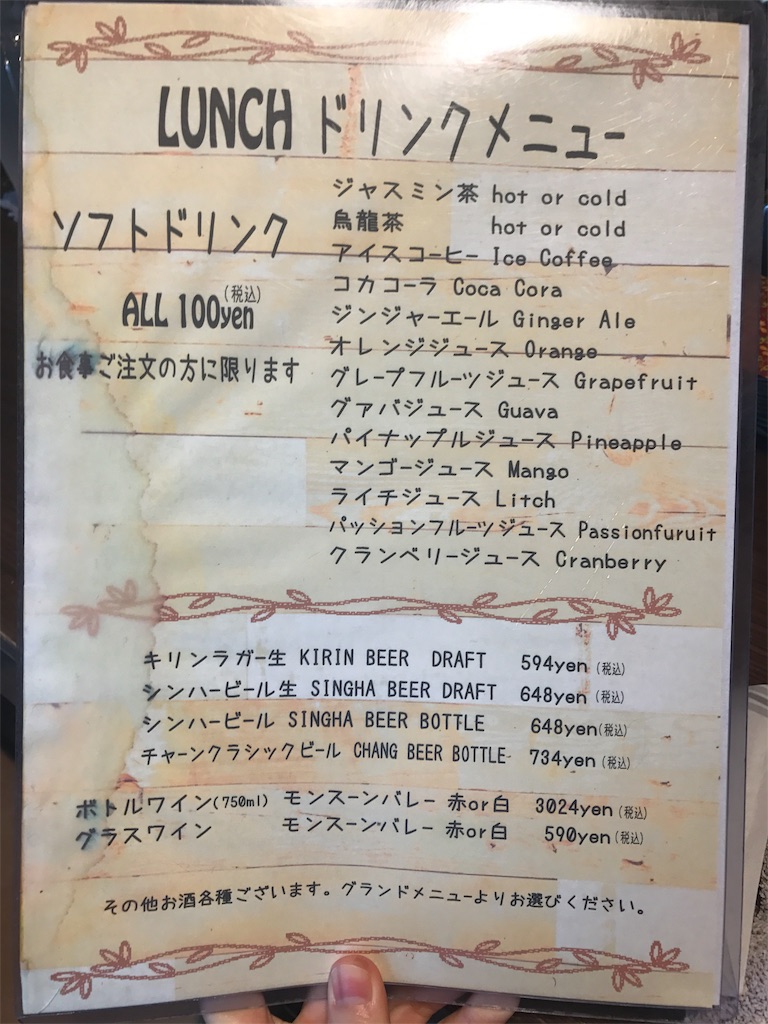 LUNCH ドリンクメニュー
ソフトドリンク
ALL 100yen (税込)
お食事ご注文の方に限ります
ジャスミン茶 hot or cold
烏龍茶 hot or cold
アイスコーヒー Ice Coffee
コカコーラ Coca Cora
ジンジャーエール Ginger Ale
オレンジジュース Orange
グレープフルーツジュース Grapefruit
グァバジュース Guava
パイナップルジュース Pineapple
マンゴージュース Mango
ライチジュース Litch
パッションフルーツジュース Passionfuruit
クランベリージュース Cranberry
キリンラガー生 KIRIN BEER DRAFT 594yen (税込)
シンハービール生 SINGHA BEER DRAFT 648yen (税込)
シンハービール SINGHA BEER BOTTLE 648yen(税込)
チャーンクラシックビール CHANG BEER BOTTLE 734yen (税込)
ボトルワイン(750ml) モンスーンバレー 赤or白 3024yen (税込)
グラスワイン モンスーンバレー 赤or白 590yen (税込)
その他お酒各種ございます。グランドメニューよりお選びください。